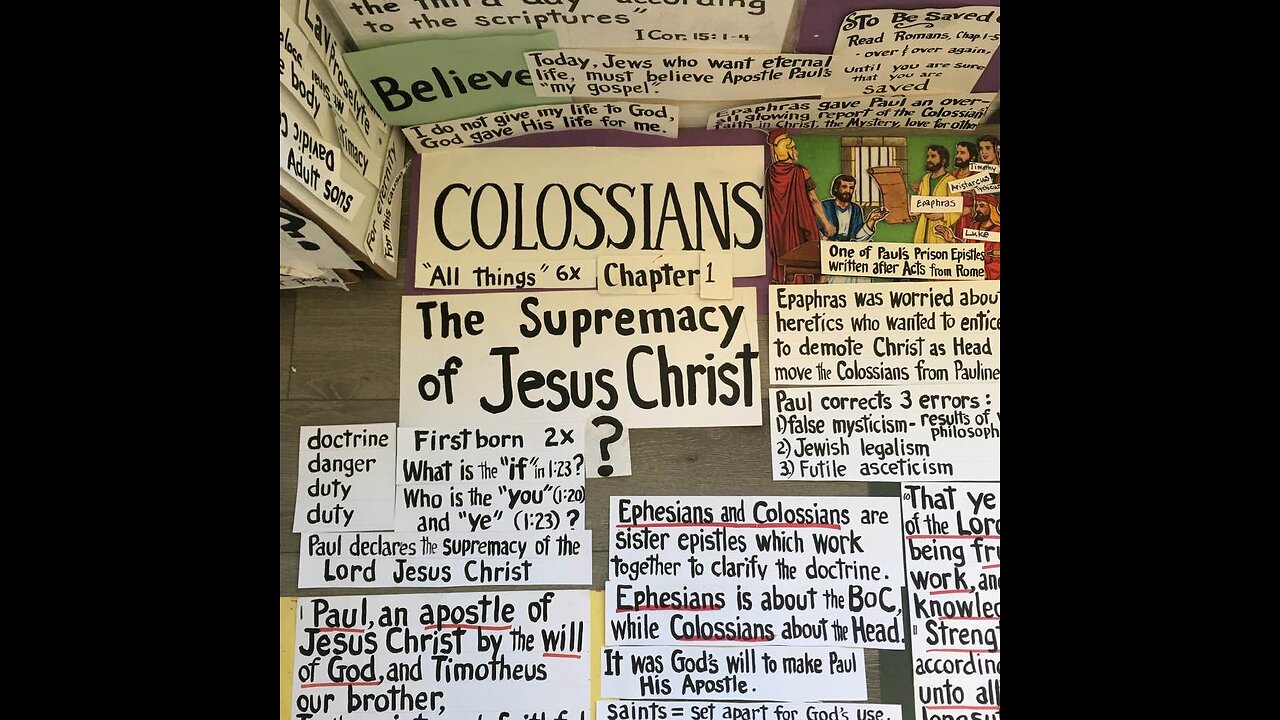 the third day according
to the scriptures"
I Cor. 15: 1-4
To Be Saved
Read Romans, Chap 1-5
- over & over again,
until you are sure
that you are
saved
Believe
Today, Jews who want eternal
life, must believe Apostle Paul's
"my gospel".
I do not give my life to God,
God gave His life for me.
Epaphras gave Paul an over-
all glowing report of the Colossian
faith in Christ, the Mystery, love for other
body
timacy
Davidic
Adult sons
For eternity
COLOSSIANS
"All things" 6x
Chapter 1
Timothy
Aristarcus
Epaphras
Luke
One of Paul's Prison Epistles
written after Acts from Rome
The Supremacy
of Jesus Christ
?
Epaphras was worried abou
heretics who wanted to entice
to demote Christ as Head
move the Colossians from Pauline
Paul corrects 3 errors:
1) false mysticism - results of
philosoph
2) Jewish legalism
3) Futile asceticism
doctrine
danger
duty
duty
Firstborn 2x
What is the "if" in 1:23?
Who is the "you" (1:20)
and "ye" (1:23)?
Paul declares the supremacy of the
Lord Jesus Christ
1 Paul, an apostle of
Jesus Christ by the will
of God, and Timotheus
our brother,
Ephesians and Colossians are
sister epistles which work
together to clarify the doctrine.
Ephesians is about the BoC,
while Colossians about the Head.
It was God's will to make Paul
His Apostle.
saints = set apart for God's use.
"That ye
of the Lord
being fru
work, and
knowled
"Strengt
accordin
unto all
longsu